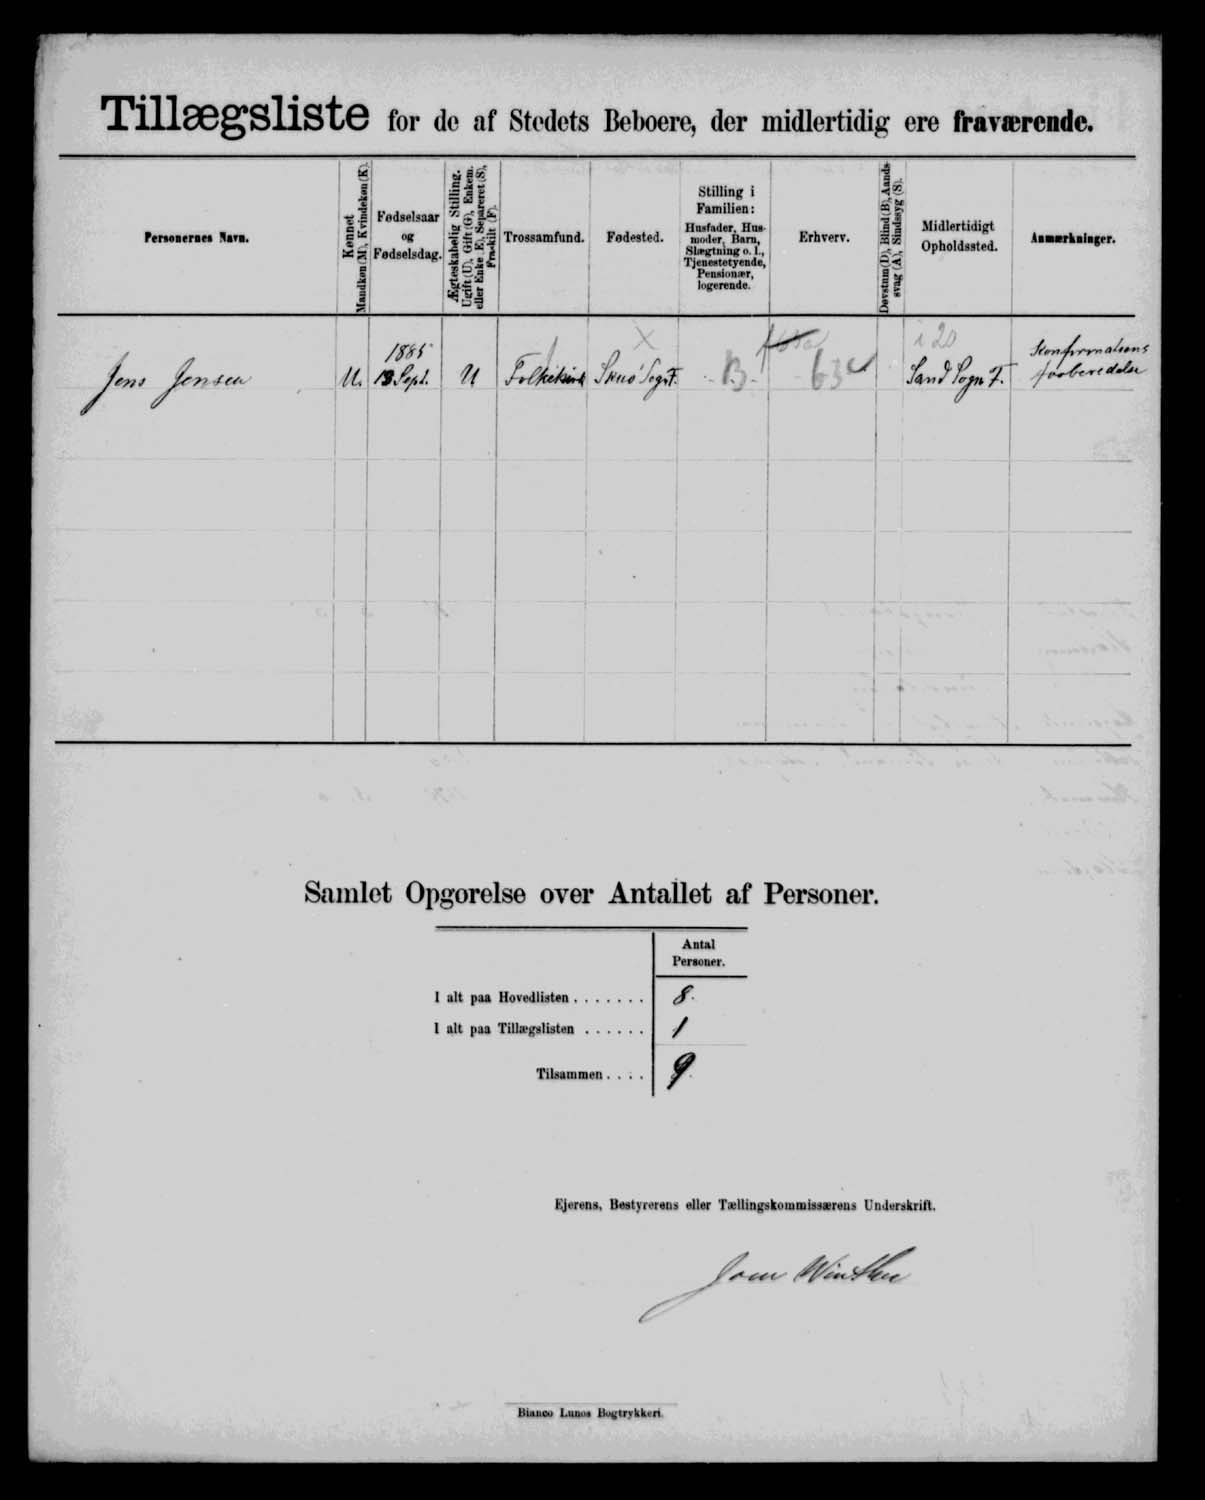 Tillægsliste for de af Stedets Beboere, der midlertidig ere fraværende.
Personernes Navn.
Kønnet
Mandkøn (M), Kvindekøn (K).
Fødselsaar
og
Fødselsdag.
Ægteskabelig Stilling.
Ugift (U), Gift (G), Enkem.
eller Enke (E), Separeret (S),
Fraskilt (F).
Trossamfund.
Fødested.
Stilling i
Familien:
Husfader, Hus-
moder, Barn,
Slægtning o. l.,
Tjenestetyende,
Pensionær,
logerende.
Erhverv.
Døvstum (D), Blind (B), Aands-
svag (A), Sindssyg (S).
Midlertidigt
Opholdssted.
Anmærkninger.
Jens Jensen
M.
1885
13. Sept.
U
Folkekirk
X
Skuø Sogn F.
B.
63
i 20
Sand Sogn F.
Konfirmations
forberedelse
Samlet Opgørelse over Antallet af Personer.
Antal
Personer.
I alt paa Hovedlisten . . . . . . . 8.
I alt paa Tillægslisten . . . . . . 1
Tilsammen . . . . 9.
Ejerens, Bestyrerens eller Tællingskommissærens Underskrift.
Joen Winther
Bianco Lunos Bogtrykkeri.